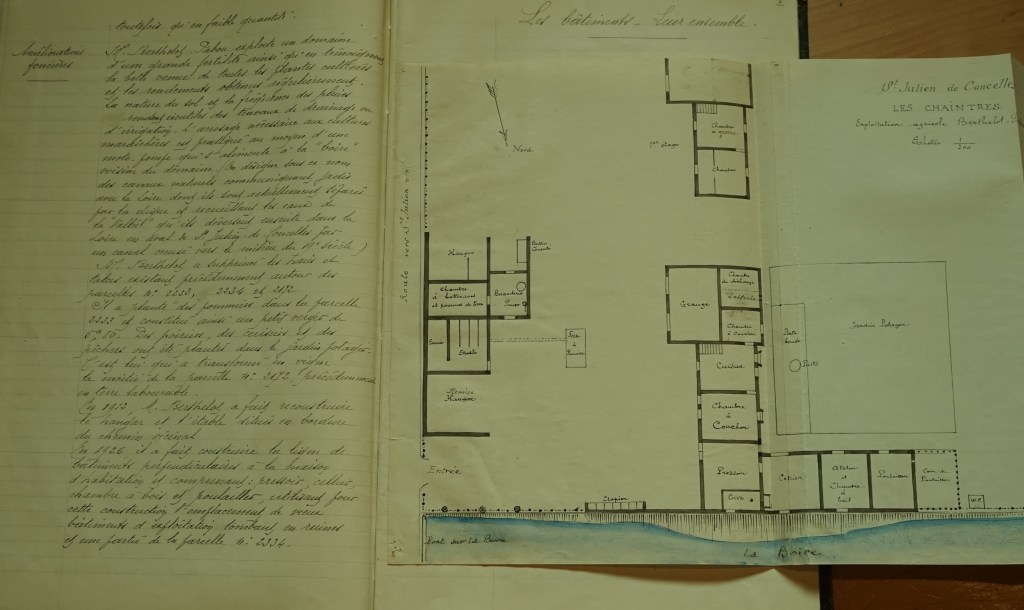 toutefois qu'en faible quantité.
Améliorations
foncières
Mr Berthelot Pabou exploite un domaine
d'une grande fertilité ainsi qu'en témoignent
la belle venue de toutes les plantes cultivées
et les rendements obtenus régulièrement.
La nature du sol et la fréquence des pluies
rendent inutiles des travaux de drainage ou
d'irrigation. L'arrosage nécessaire aux cultures
maraîchères est pratiqué au moyen d'une
moto-pompe qui s'alimente à la "boire"
voisine du domaine. (On désigne sous ce nom
des canaux naturels communiquant jadis
avec la Loire dont ils sont actuellement séparés
par la digue et recueillant les eaux de
la "vallée" qu'ils diversent ensuite dans la
Loire en aval de St Julien de Concelles par
un canal creusé vers le milieu du 19e siècle)
Mr Berthelot a supprimé les haies et
talus existant précédemment autour des
parcelles no 2233, 2234 et 2172
Il a planté des pommiers dans la parcelle
2223 et constitué ainsi un petit verger de
Des poiriers, des cerisiers et des
pêchers ont été plantés dans le jardin potager.
C'est lui qui a transformé en vigne
la moitié de la parcelle no 2172 précédemment
en terre labourable.
En 1912, M. Berthelot a fait reconstruire
le hangar et l'étable situés en bordure
du chemin vicinal
En 1926 il a fait construire la ligne de
bâtiments perpendiculaires à la maison
d'habitation et comprenant : pressoir, cellier,
chambre à bois et poulailler, utilisant pour
cette construction l'emplacement de vieux
bâtiments d'exploitation tombant en ruines
et une partie de la parcelle no 2334.
Les bâtiments - Leur ensemble
St Julien de Concelles
LES CHAINTRES
Exploitation agricole Berthelot
Echelle 1/200
Nord
1er étage
Chambre
Chambre
Route vers St Julien
Hangar
Chambre
à betteraves
et pommes de terre
Buanderie
Ecurie
Etable
Remise
Hangar
Fosse
à
Purin
Grange
Chambre
Chambre
à Coucher
Cuisine
Chambre
à
Coucher
Pressoir
Cuve
Cellier
Atelier
et
Chambre
à
bois
Poulailler
Cour du
Poulailler
W.C.
Plate
bande
Puits
Jardin Potager
Entrée
Clapier
Pont sur la Boire
La Boire